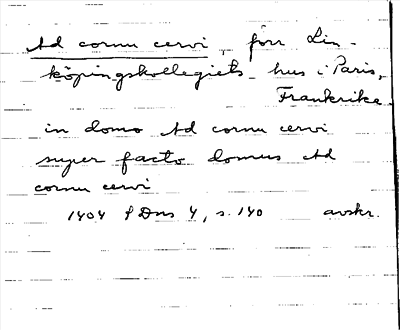 Ad cornu cervi, förr Lin-
köpingskollegiets hus i Paris,
Frankrike.
in domo Ad cornu cervi
super facto domus Ad
cornu cervi
1404 f Dns 4, s. 140 avskr.